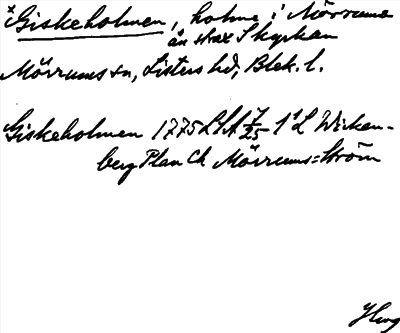 *Giskeholmen, holme i Mörrums
ån strax S kyrkan
Mörrums sn, Listers hd, Blek. l.
Giskeholmen 1775 LSA 7/25 1¹ L Wirken-
berg Plan Ch Mörrums=Ström